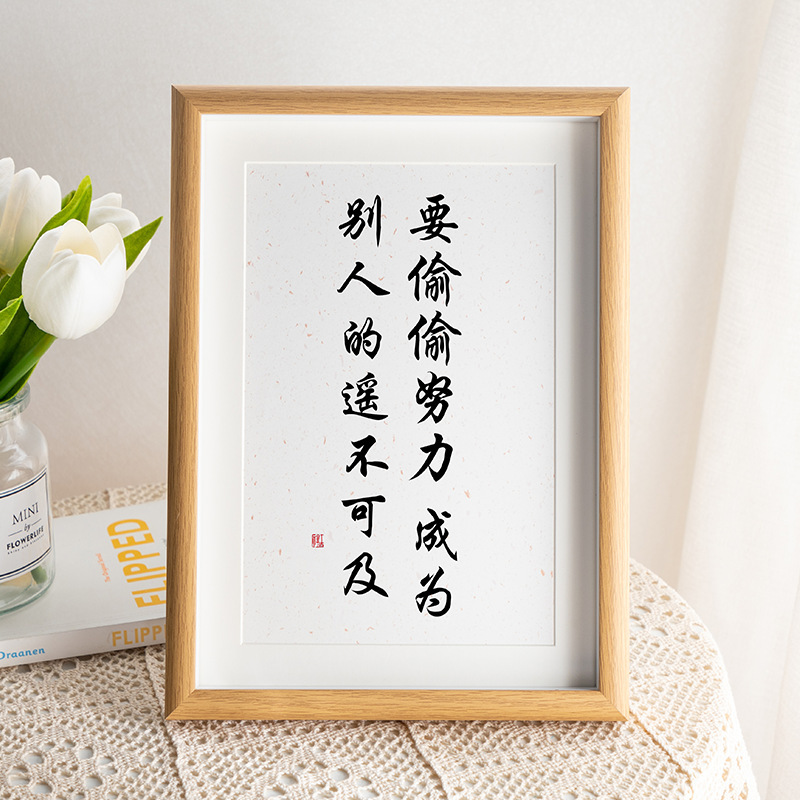 要偷偷努力成为
别人的遥不可及
MINI
by
FLOWERLIFE
FLIPPED
FLIPP
Draanen